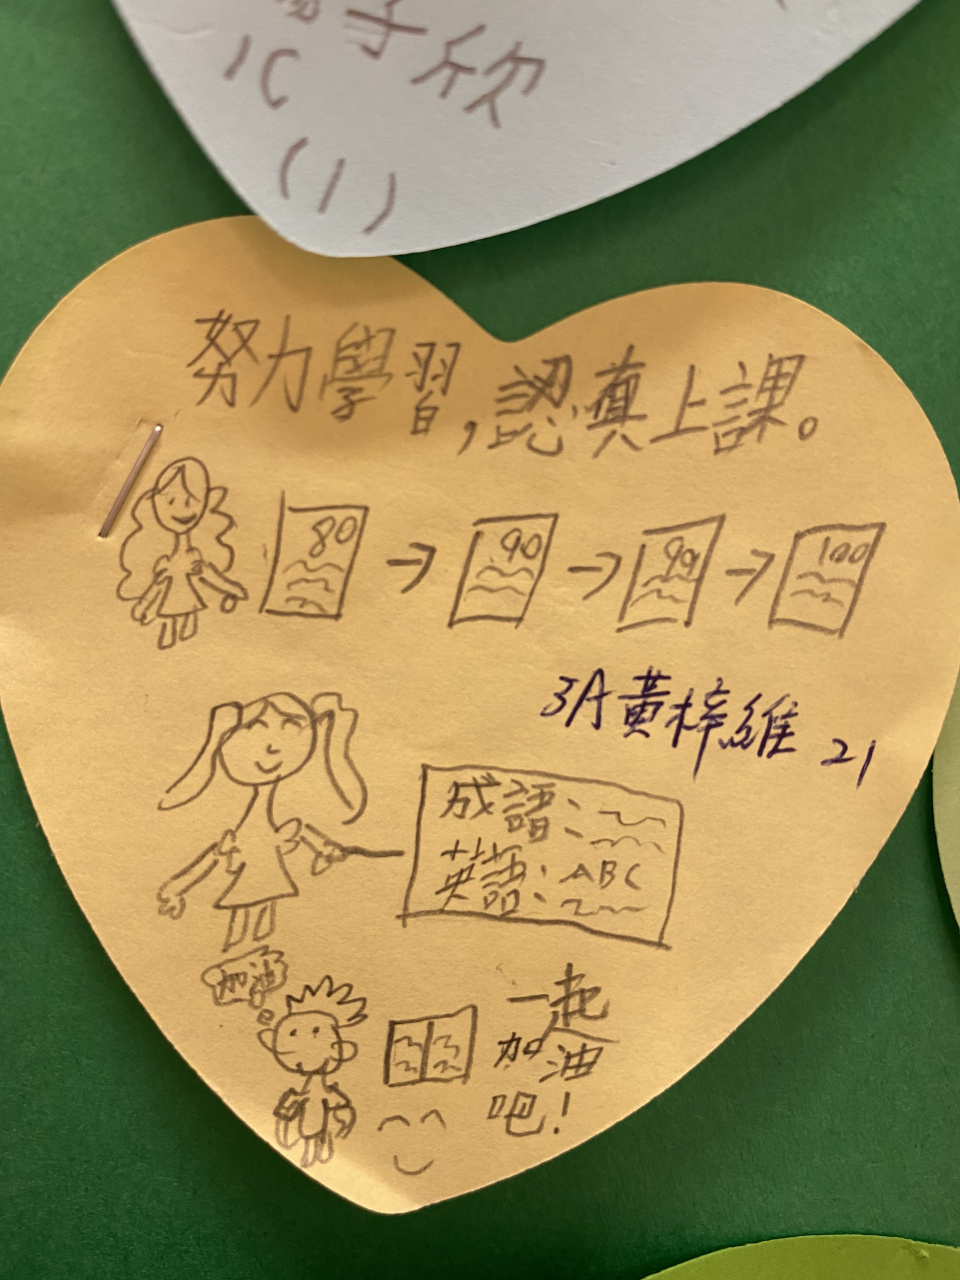 子欣
1C
(1)
努力學習,認真上課。
80 → 90 → 99 → 100
3A黃梓維 21
成語:
英語:ABC
加油
一起
加油
吧!